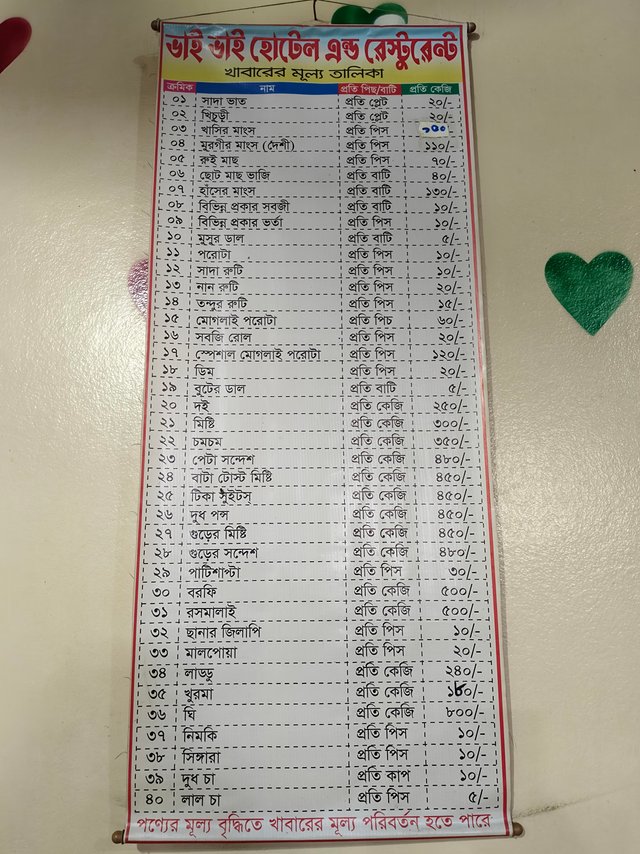 ভাই ভাই হোটেল এন্ড রেস্টুরেন্ট
খাবারের মূল্য তালিকা
ক্রমিক নাম প্রতি পিছ/বাটি প্রতি কেজি
০১ সাদা ভাত প্রতি প্লেট ২০/-
০২ খিচুড়ী প্রতি প্লেট ২০/-
০৩ খাসির মাংস প্রতি পিস ১০০/-
০৪ মুরগীর মাংস (দেশী) প্রতি পিস ১১০/-
০৫ রুই মাছ প্রতি পিস ৭০/-
০৬ ছোট মাছ ভাজি প্রতি বাটি ৪০/-
০৭ হাঁসের মাংস প্রতি বাটি ১৩০/-
০৮ বিভিন্ন প্রকার সবজী প্রতি বাটি ১০/-
০৯ বিভিন্ন প্রকার ভর্তা প্রতি পিস ১০/-
১০ মুসুর ডাল প্রতি বাটি ৫/-
১১ পরোটা প্রতি পিস ১০/-
১২ সাদা রুটি প্রতি পিস ১০/-
১৩ নান রুটি প্রতি পিস ২০/-
১৪ তন্দুর রুটি প্রতি পিস ১৫/-
১৫ মোগলাই পরোটা প্রতি পিচ ৬০/-
১৬ সবজি রোল প্রতি পিস ২০/-
১৭ স্পেশাল মোগলাই পরোটা প্রতি পিস ১২০/-
১৮ ডিম প্রতি পিস ২০/-
১৯ বুটের ডাল প্রতি বাটি ৫/-
২০ দই প্রতি কেজি ২৫০/-
২১ মিষ্টি প্রতি কেজি ৩০০/-
২২ চমচম প্রতি কেজি ৩৫০/-
২৩ পেটা সন্দেশ প্রতি কেজি ৪৮০/-
২৪ বাটা টোস্ট মিষ্টি প্রতি কেজি ৪৫০/-
২৫ টিকা সুইটস্ প্রতি কেজি ৪৫০/-
২৬ দুধ পন্স প্রতি কেজি ৪৫০/-
২৭ গুড়ের মিষ্টি প্রতি কেজি ৪৫০/-
২৮ গুড়ের সন্দেশ প্রতি কেজি ৪৮০/-
২৯ পাটিশাপ্টা প্রতি পিস ৩০/-
৩০ বরফি প্রতি কেজি ৫০০/-
৩১ রসমালাই প্রতি কেজি ৫০০/-
৩২ ছানার জিলাপি প্রতি পিস ১০/-
৩৩ মালপোয়া প্রতি পিস ২০/-
৩৪ লাড্ডু প্রতি কেজি ২৪০/-
৩৫ খুরমা প্রতি কেজি
৩৬ ঘি প্রতি কেজি ৮০০/-
৩৭ নিমকি প্রতি পিস ১০/-
৩৮ সিঙ্গারা প্রতি পিস ১০/-
৩৯ দুধ চা প্রতি কাপ ১০/-
৪০ লাল চা প্রতি পিস ৫/-
পণ্যের মূল্য বৃদ্ধিতে খাবারের মূল্য পরিবর্তন হতে পারে